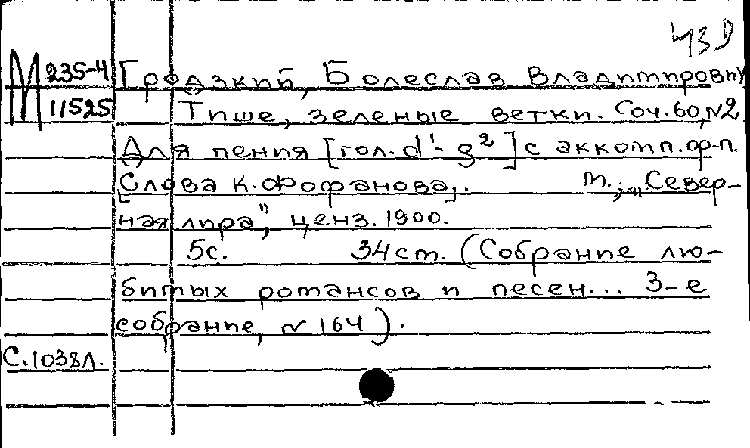 43D
М 235-4 Гродзкий, Болеслав Владимирович
11525 Тише, зеленые ветки. Соч. 60, №2.
Для пения [гол. d¹-g²] с аккомп. ф-п.
Слова К. Фофанова,. М., "Север-
ная лира", ценз. 1900.
5с. 34 см. (Собрание лю-
бимых романсов и песен... 3-е
собрание, № 164).
С.1038Л.